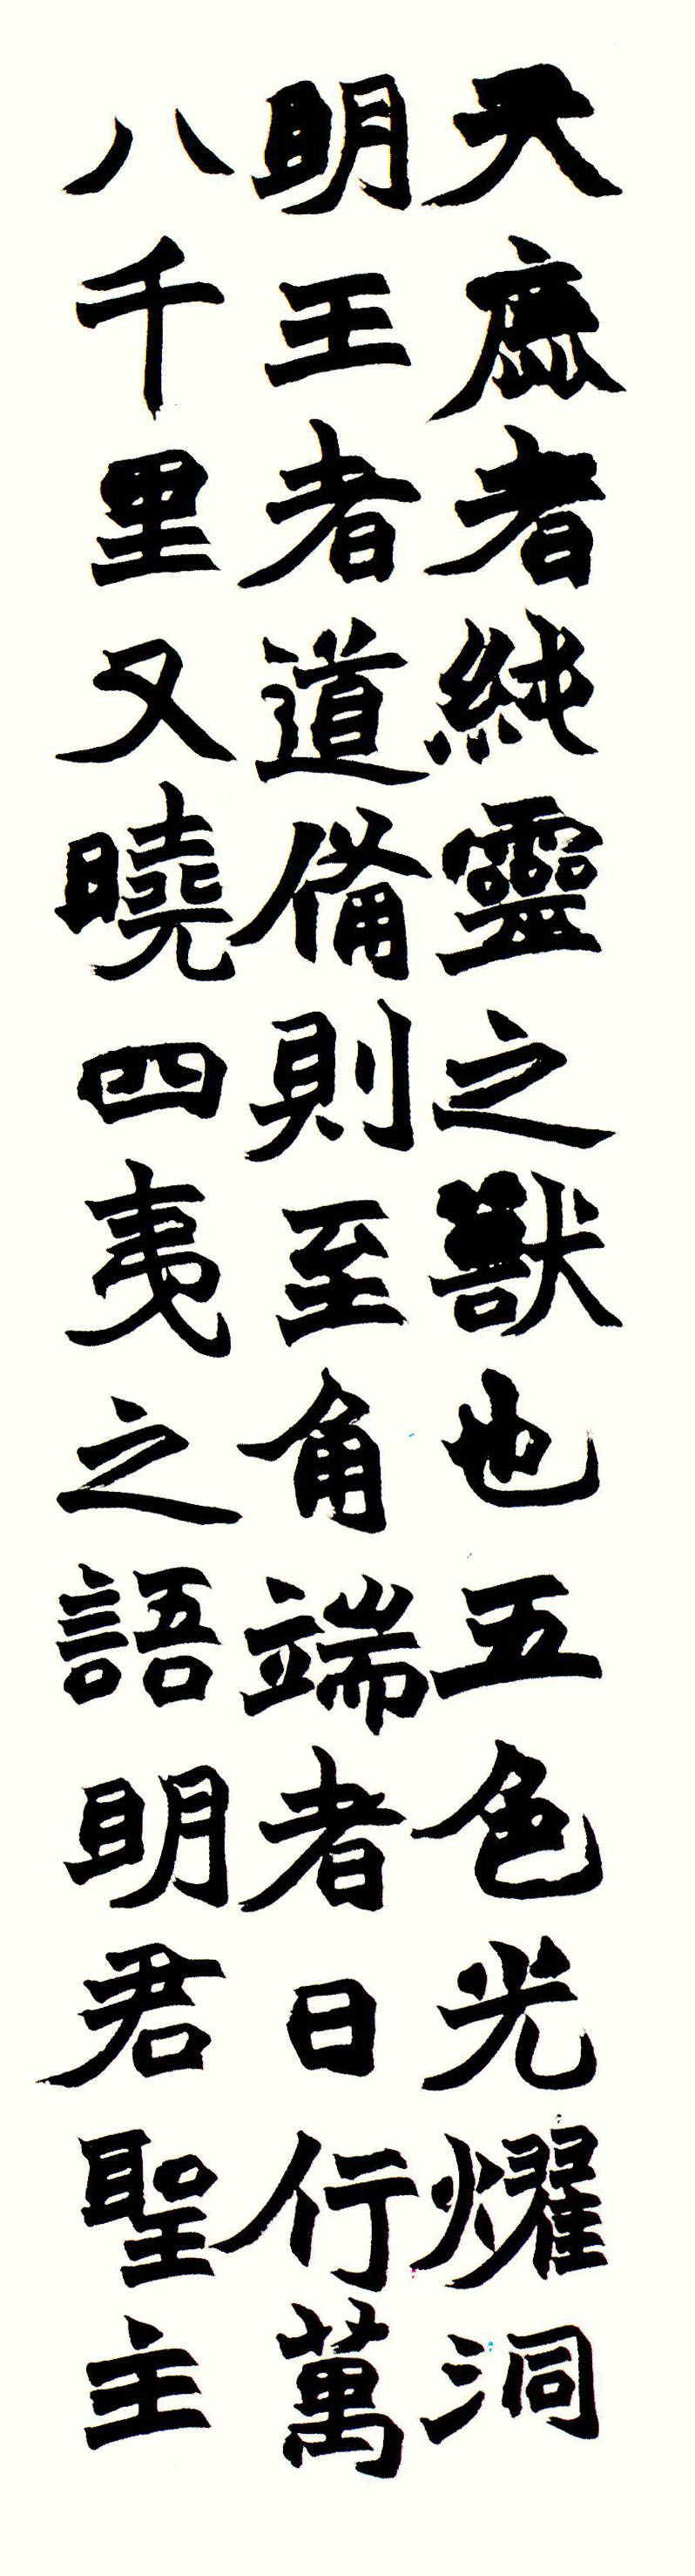 天鹿者純靈之獸也五色光耀洞
明王者道備則至角端者日行萬
八千里又曉四夷之語明君聖主